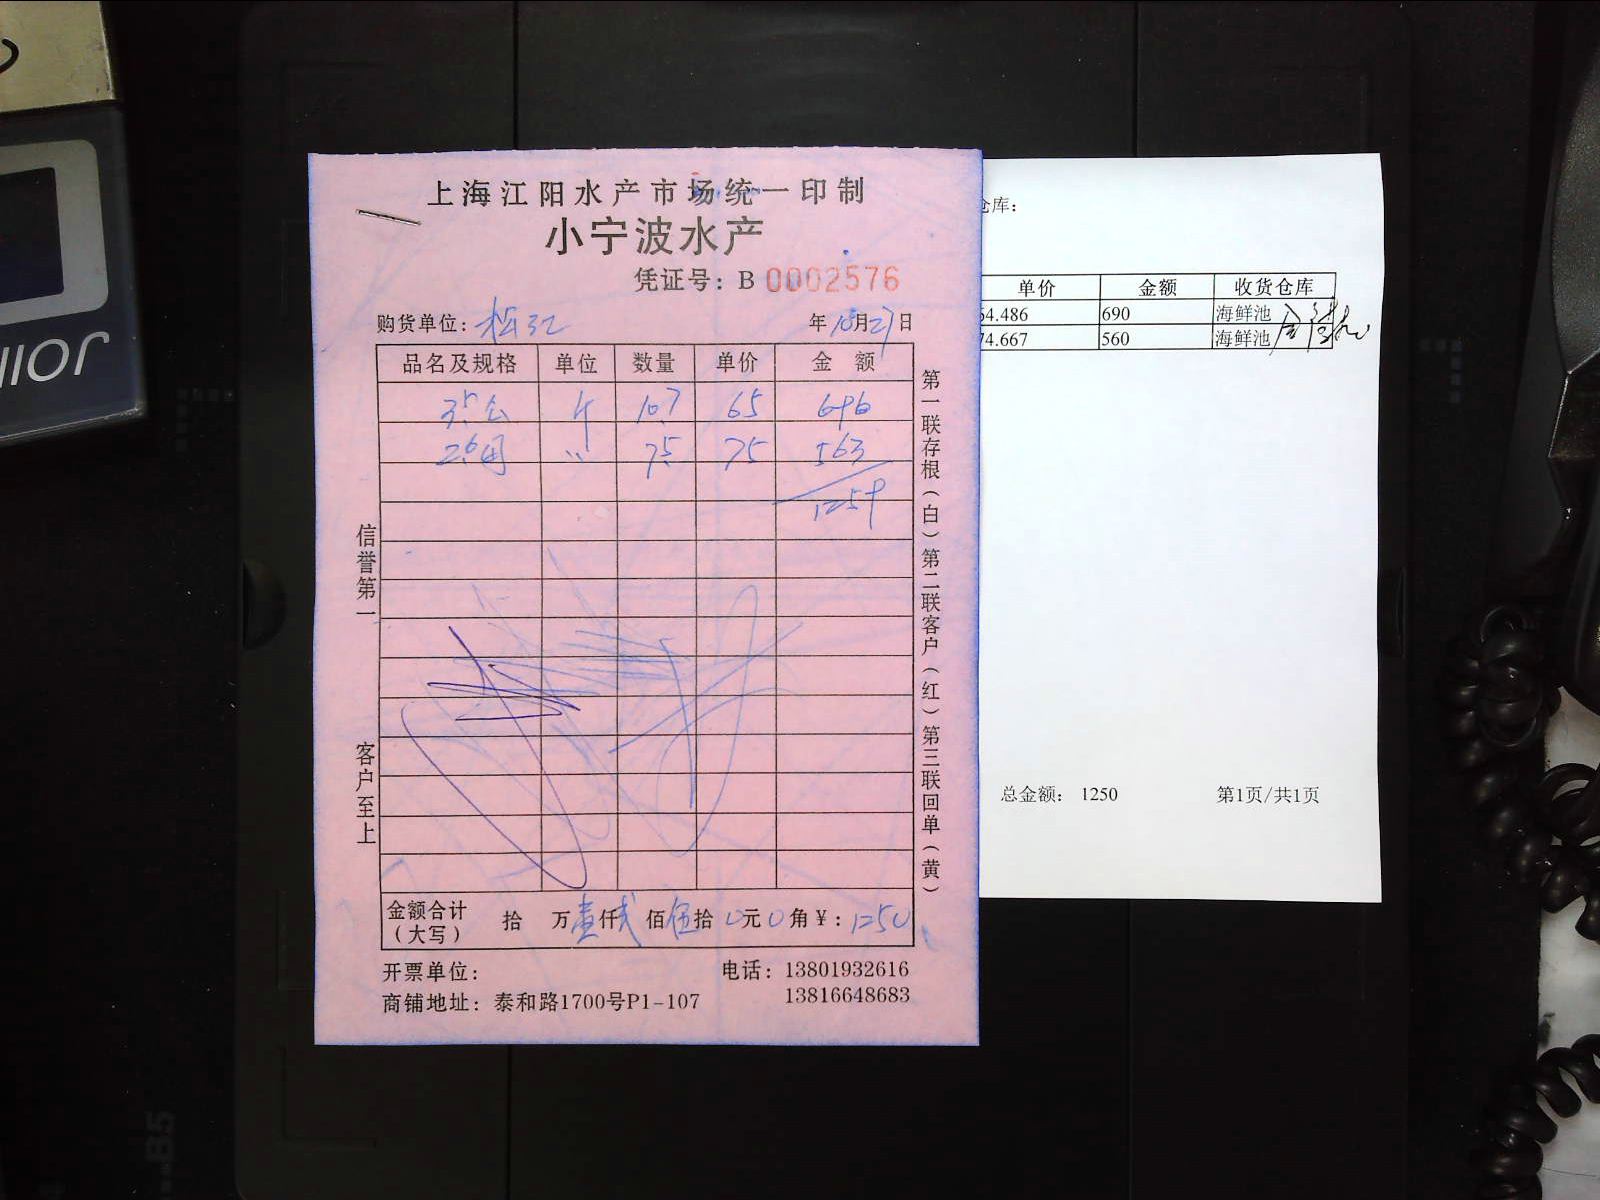 上海江阳水产市场统一印制
小宁波水产
凭证号：B 0002576
购货单位：松江 年10月27日
品名及规格 单位 数量 单价 金额
3.5公 斤 10.7 65 696
2.6母 〃 7.5 75 563
1259
信誉第一
客户至上
第一联存根（白）第二联客户（红）第三联回单（黄）
金额合计（大写） 拾 万壹仟贰佰伍拾0元0角￥：1250
开票单位：
电话：13801932616
13816648683
商铺地址：泰和路1700号P1-107
仓库：
单价 金额 收货仓库
64.486 690 海鲜池
74.667 560 海鲜池
总金额： 1250 第1页/共1页
B5